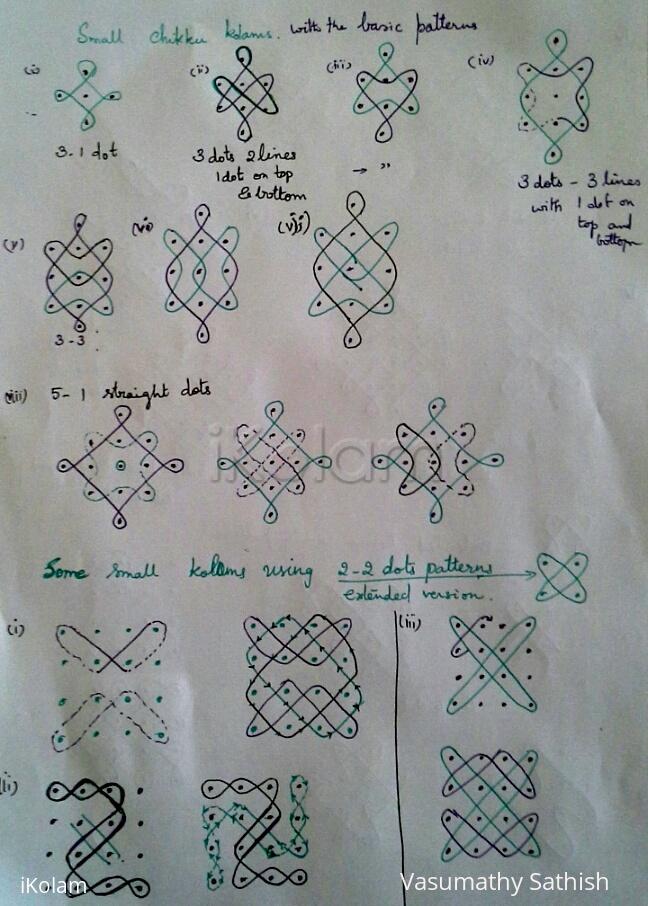 Small chikku kolams. with the basic patterns
(i)
(ii)
(iii)
(iv)
3-1 dot
3 dots 2 lines
1 dot on top
& bottom
→ "
3 dots - 3 lines
with 1 dot on
top and
bottom
(v)
(vi)
(vii)
3-3
(viii) 5-1 straight dots
iKolam
Some small kolams using 2-2 dots patterns
extended version.
(i)
(iii)
(ii)
iKolam
Vasumathy Sathish